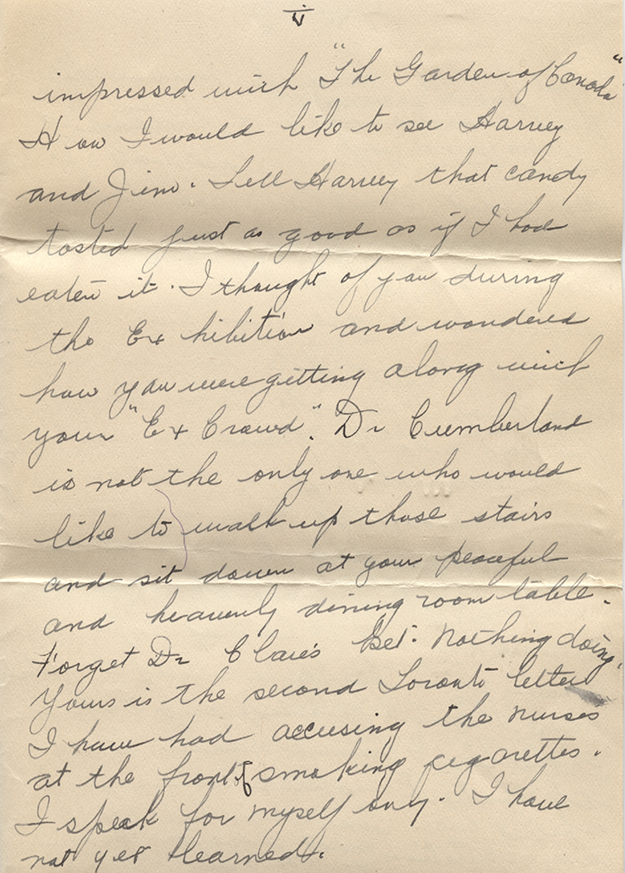 V
impressed with "The Garden of Canada"
How I would like to see Harvey
and Jim. Tell Harvey that candy
tasted just as good as if I had
eaten it. I thought of you during
the Exhibition and wondered
how you were getting along with
your "Ex Crowd". Dr Cumberland
is not the only one who would
like to walk up those stairs
and sit down at your peaceful
and heavenly dining room table.
Forget Dr bet. Nothing doing.
Yours is the second Toronto letter
I have had accusing the nurses
at the front of smoking cigarettes.
I speak for myself only. I have
not yet learned.